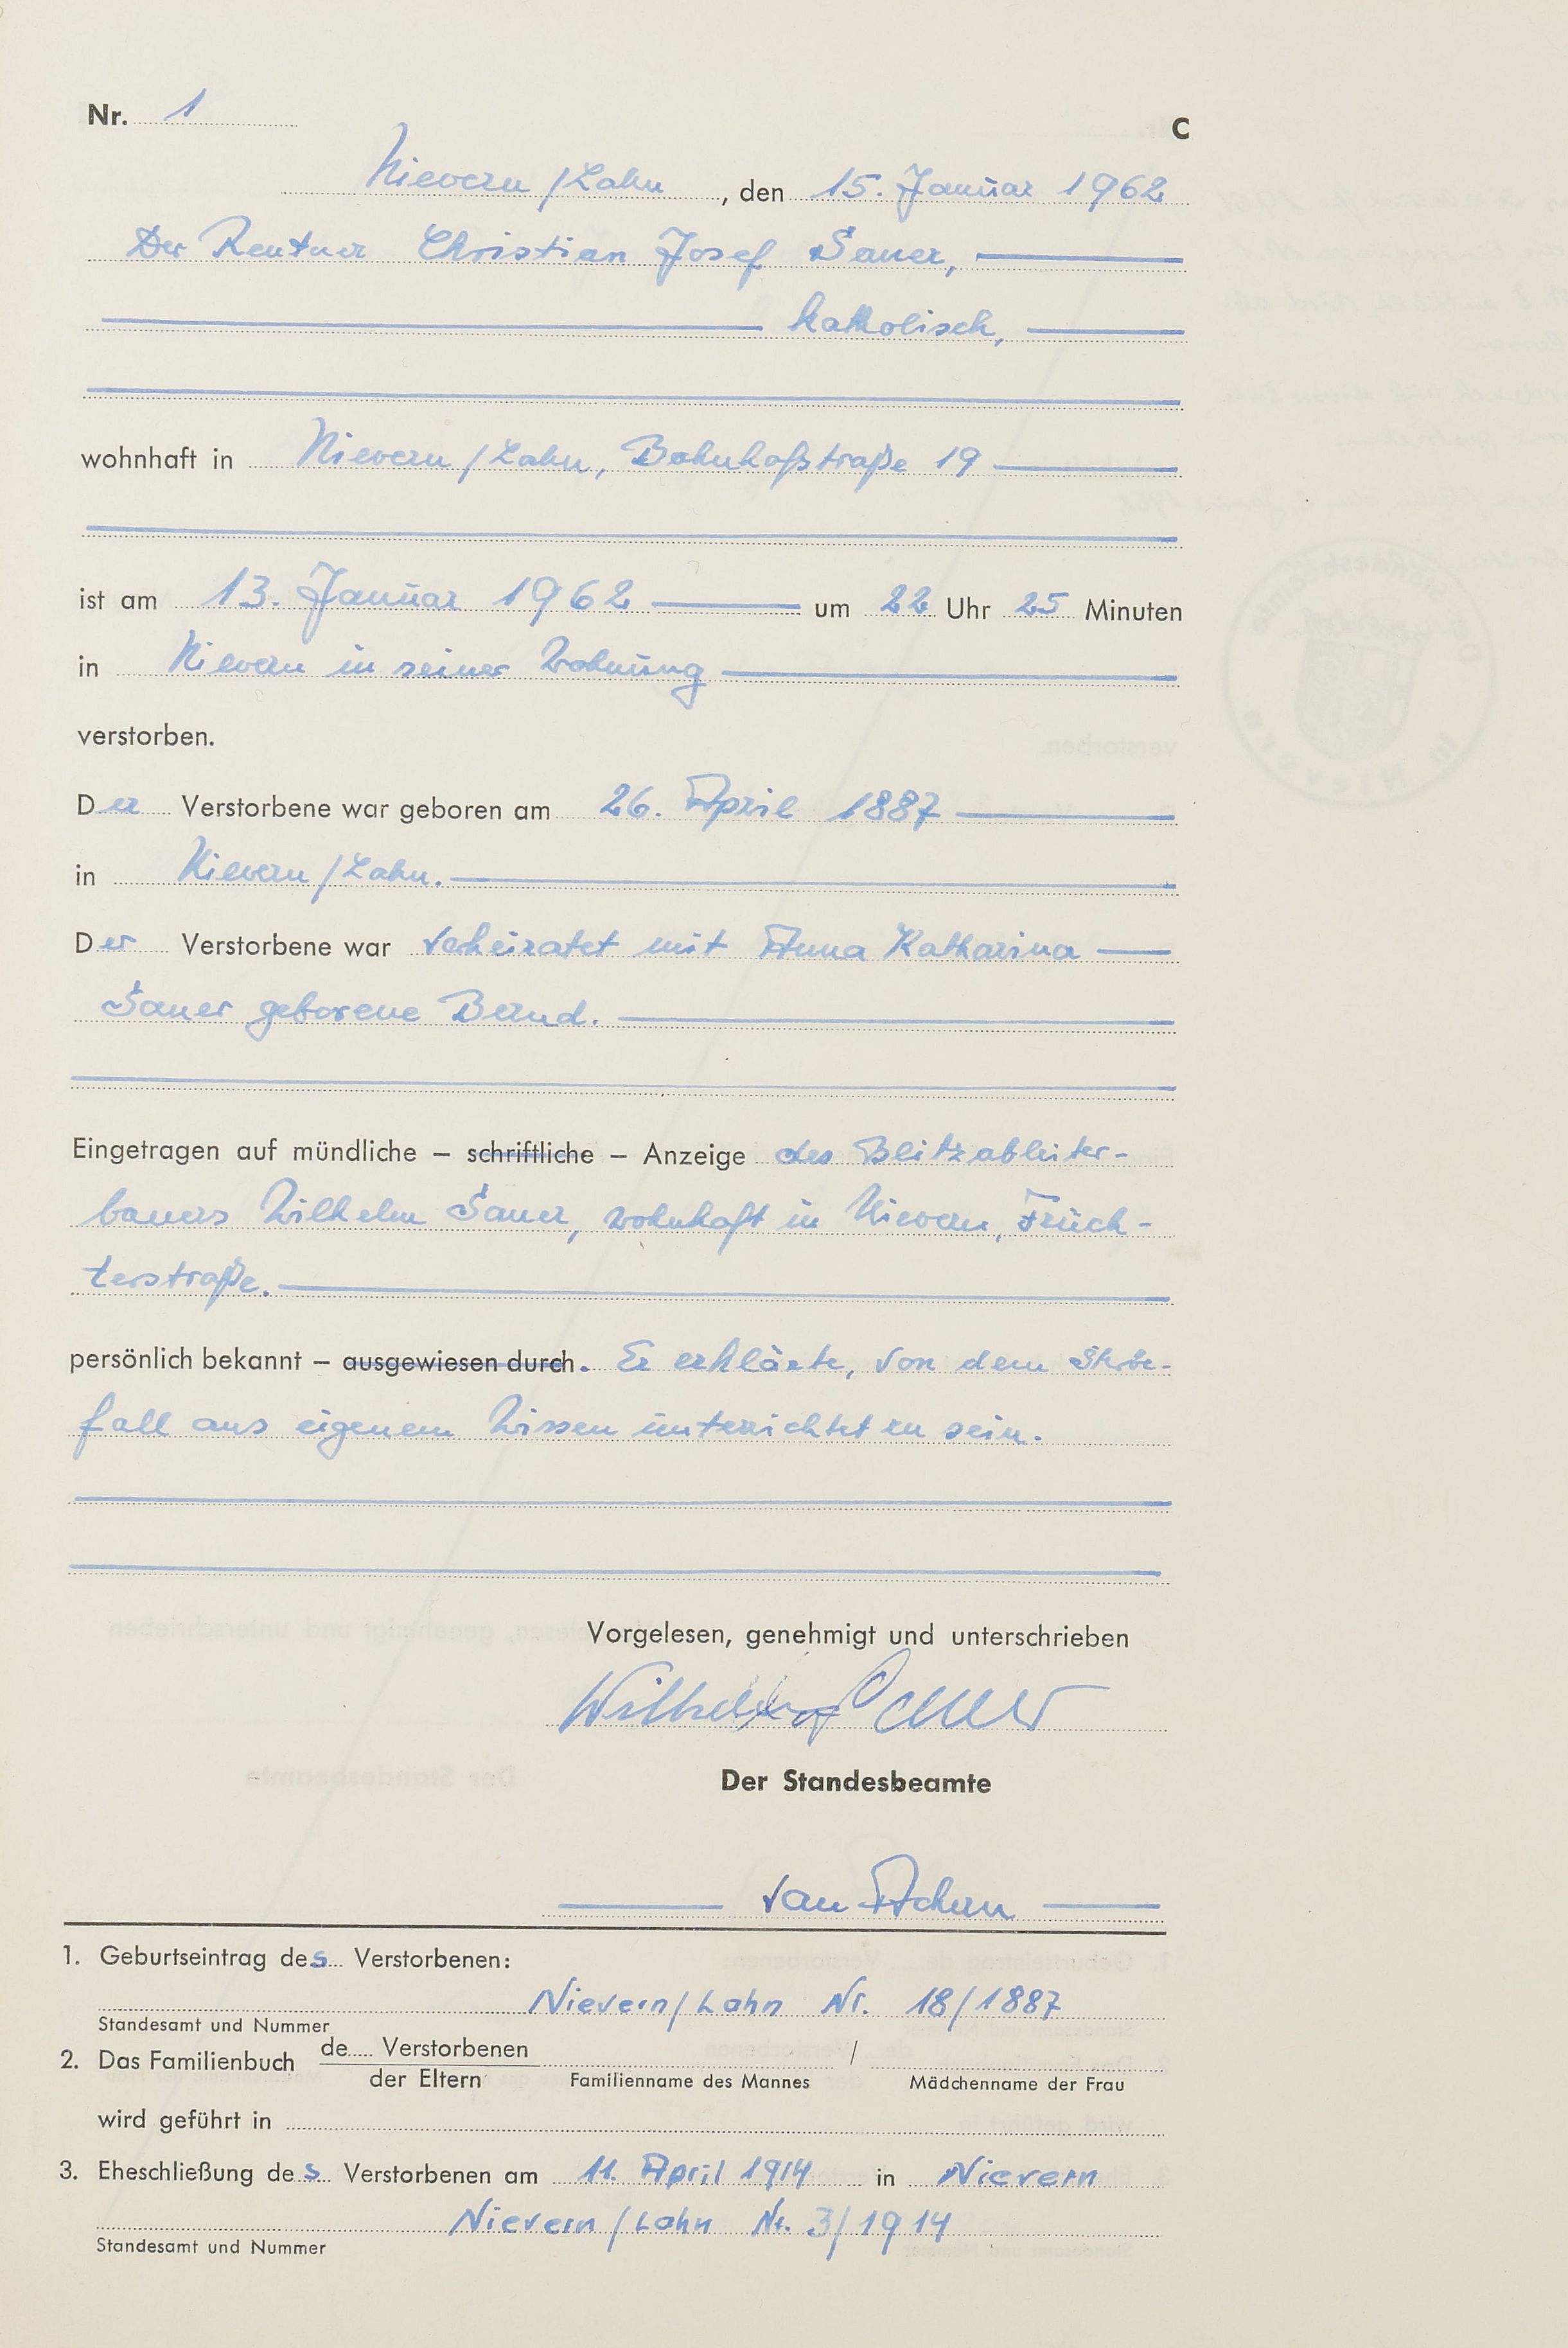 Nr. 1
C
Nievern/Lahn, den 15. Januar 1962
Der Rentner Christian Josef Sauer,
katholisch,
wohnhaft in Nievern/Lahn, Bahnhofstraße 19
ist am 13. Januar 1962 um 22 Uhr 25 Minuten
in Nievern in seiner Wohnung
verstorben.
Der Verstorbene war geboren am 26. April 1887
in Nievern/Lahn.
Der Verstorbene war verheiratet mit Anna Katharina
Sauer geborene Bernd.
Eingetragen auf mündliche – schriftliche – Anzeige des Blitzableiter-
bauers Wilhelm Sauer, wohnhaft in Nievern, Früch-
terstraße.
persönlich bekannt – ausgewiesen durch. Er erklärte, von dem Sterbe-
fall aus eigenem Wissen unterrichtet zu sein.
Vorgelesen, genehmigt und unterschrieben
Wilhelm Sauer
Der Standesbeamte
1. Geburtseintrag des Verstorbenen:
Nievern/Lahn Nr. 18/1887
Standesamt und Nummer
2. Das Familienbuch de Verstorbenen /
der Eltern Familienname des Mannes Mädchenname der Frau
wird geführt in
3. Eheschließung des Verstorbenen am 11. April 1914 in Nievern
Nievern/Lahn Nr. 3/1914
Standesamt und Nummer